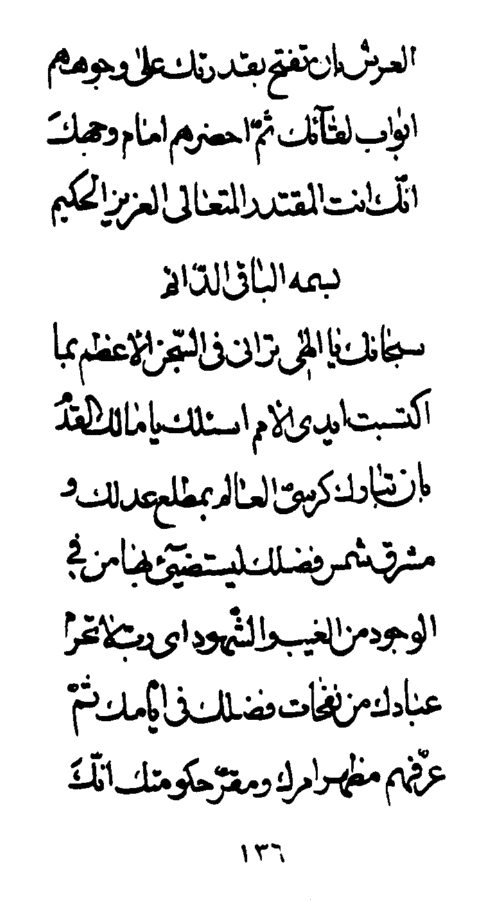 العرش بان تفتح بقدرتك علی وجوههم
ابواب لقآئك ثمّ احضرهم امام وجهك
انّك انت المقتدر المتعالی العزیز الحکیم
بسمه الباقی الدّائم
سبحانك یا الهی ترانی فی السّجن الاعظم بما
اکتسبت ایدی الامم اسئلك یا مالك القدم
بان تبارك کرسیّ العالم بمطلع عدلك و
مشرق شمس فضلك لیستضیٓئ بها من فی
الوجود من الغیب و الشّهود ای ربّ لا تحرم
عبادك من نفحات فضلك فی ایّامك ثمّ
عرّفهم مظهر امرك و مقرّ حکومتك انّك
١٣٦